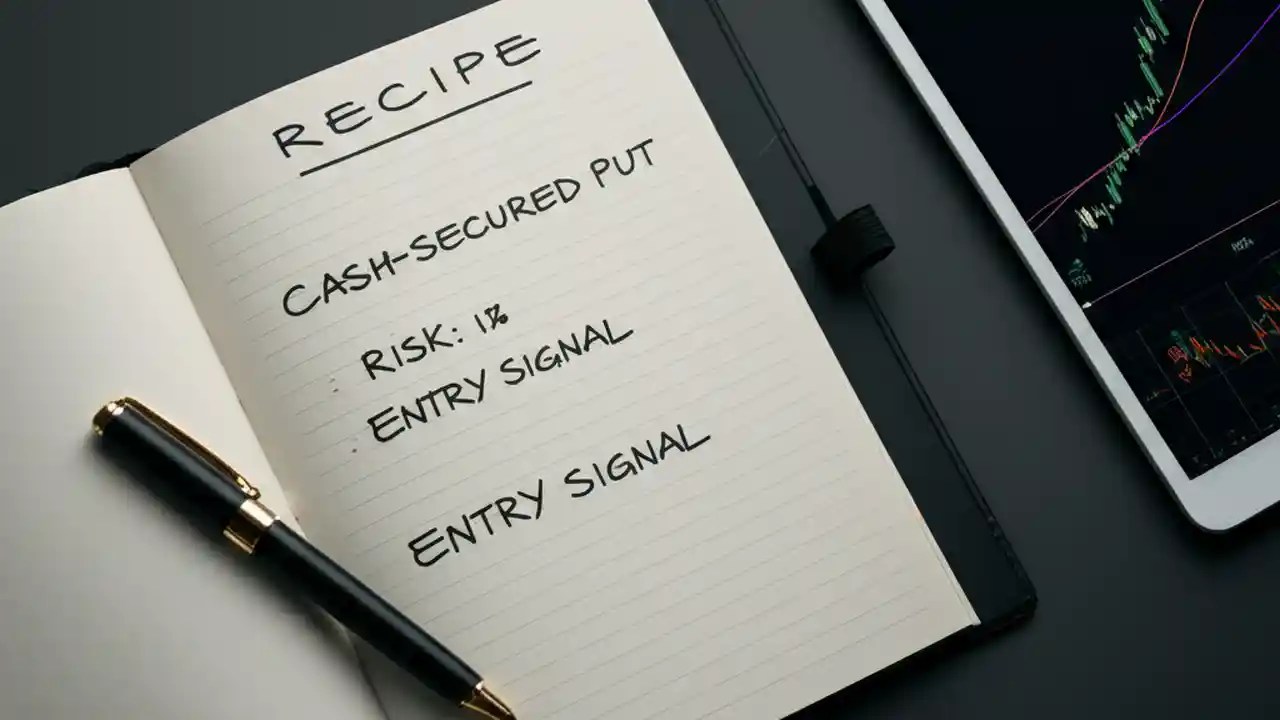 RECIPE
CASH-SECURED PUT
RISK: 1%
ENTRY SIGNAL
ENTRY SIGNAL